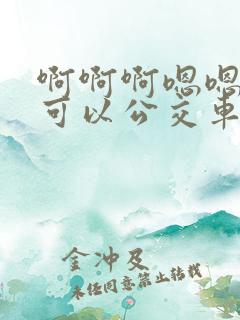 啊啊啊嗯嗯
可以公交车
金冲及
未经同意禁止转载